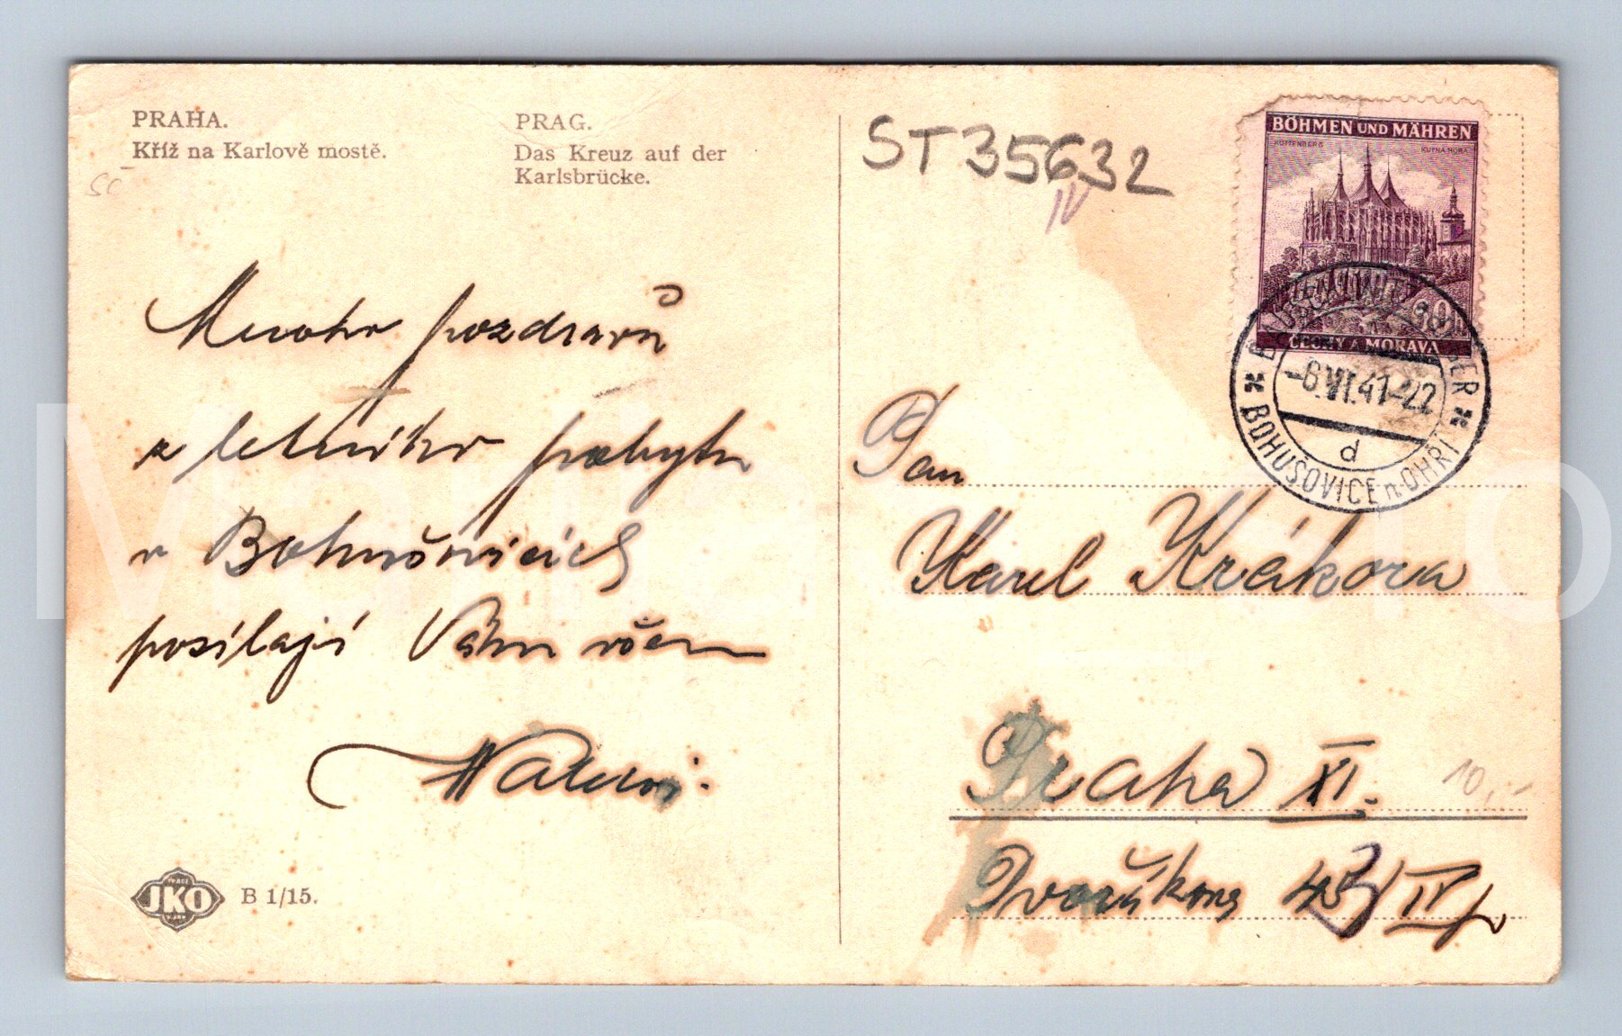 PRAHA.
Kříž na Karlově mostě.
PRAG.
Das Kreuz auf der
Karlsbrücke.
ST35632
IV
BÖHMEN UND MÄHREN
KUTTENBERG
KUTNÁ HORA
ČECHY A MORAVA
-6.VI.41-22
d
BOHUŠOVICE n. OHŘÍ
Mnoho pozdravů
z letního pobytu
v Bohušovicích
posílají Vám všem
Pan
Karel Krákora
Praha XI.
10,-
Dvořákova
JKO
B 1/15.